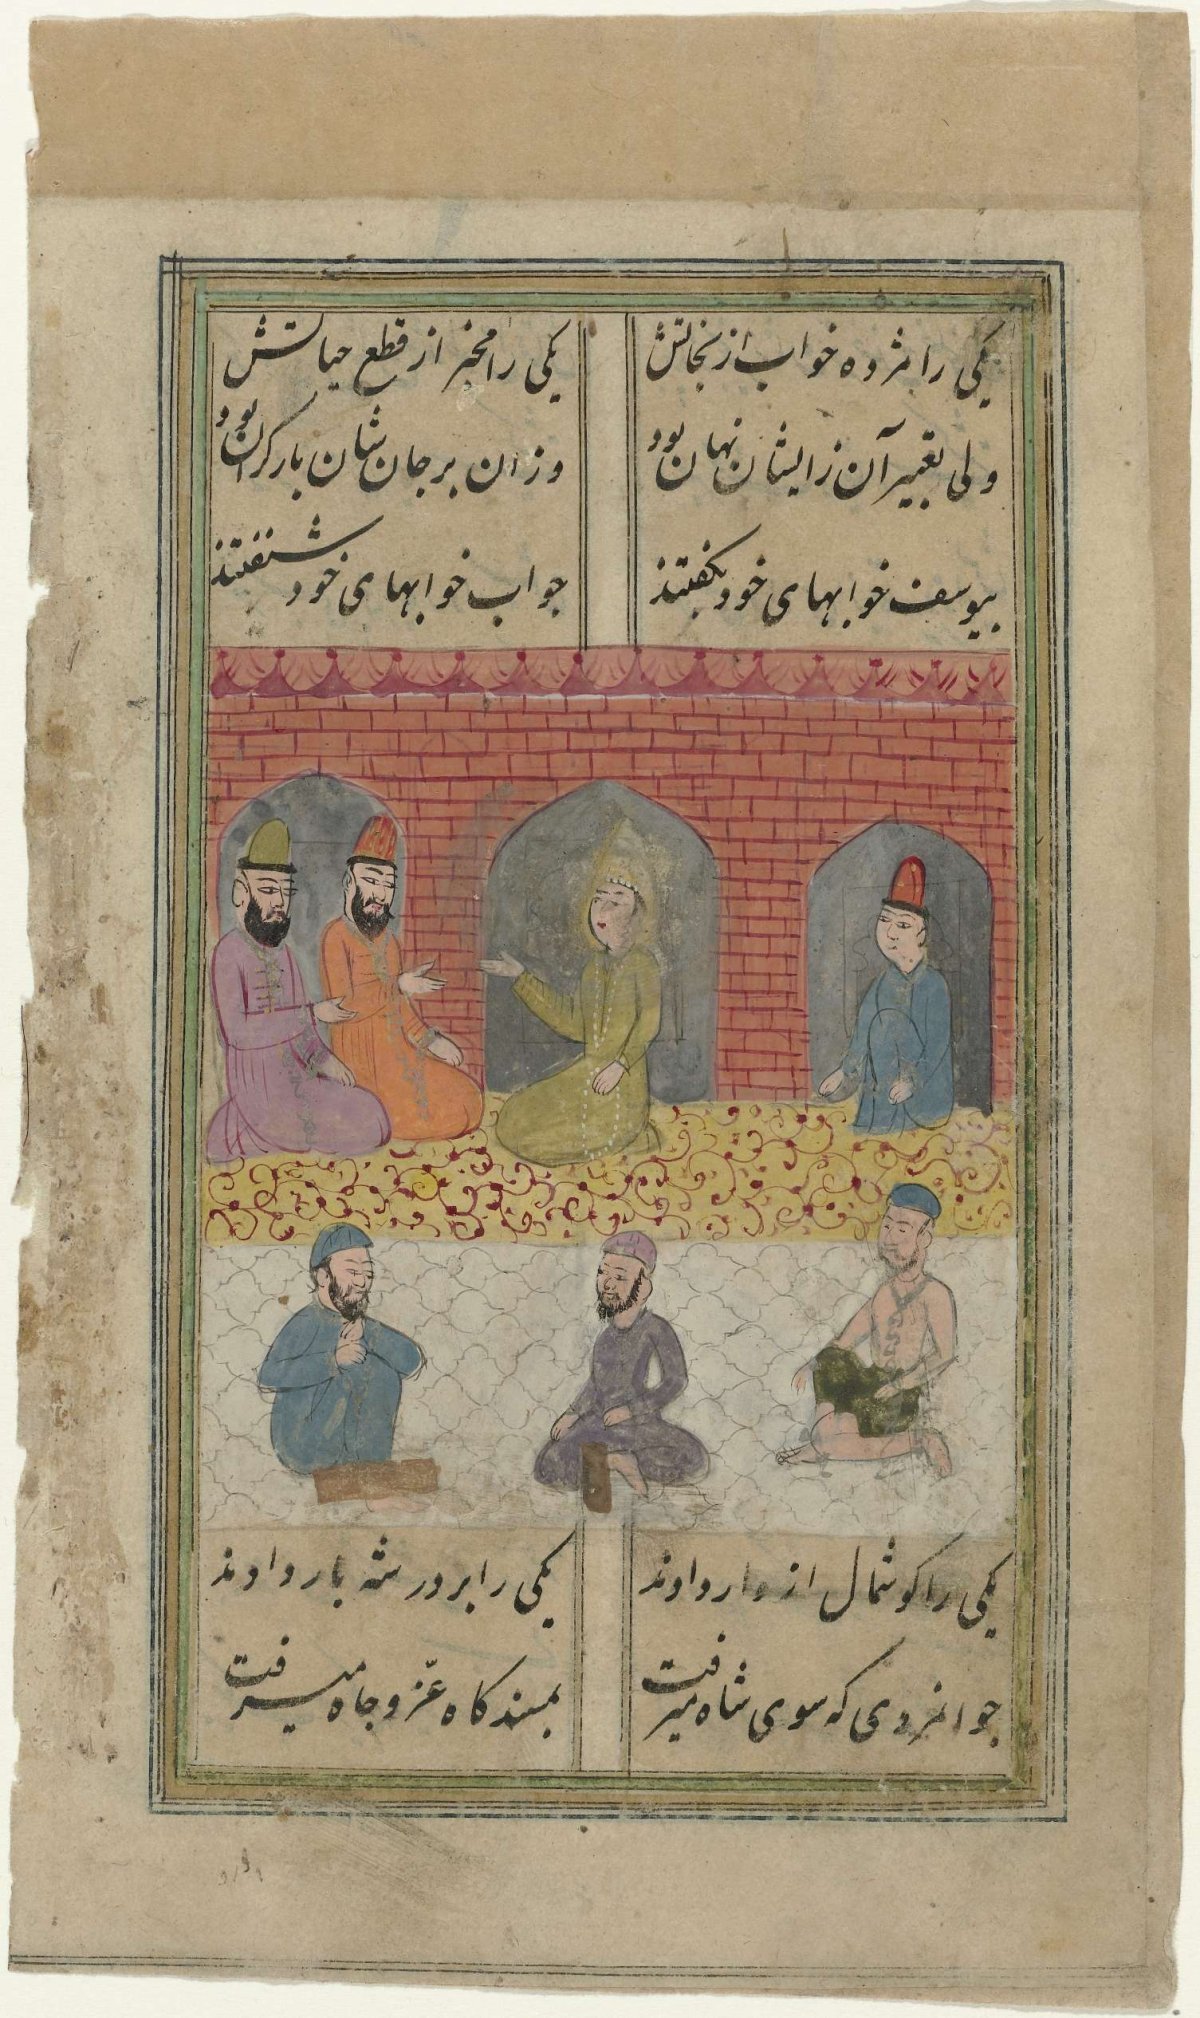 یکی را مژده خواب از نجاتش یکی را مخبر از قطع حیاتش
ولی تعبیر آن زایشان نهان بود وزان بر جانشان بار گران بود
بیوسف خوابهای خود بگفتند جواب خوابهای خود شنفتند
یکی را کوشمال از دار دادند یکی را بر در شه بار دادند
جوانمردی که سوی شاه میرفت بمسند کاه عزّ و جاه میرفت